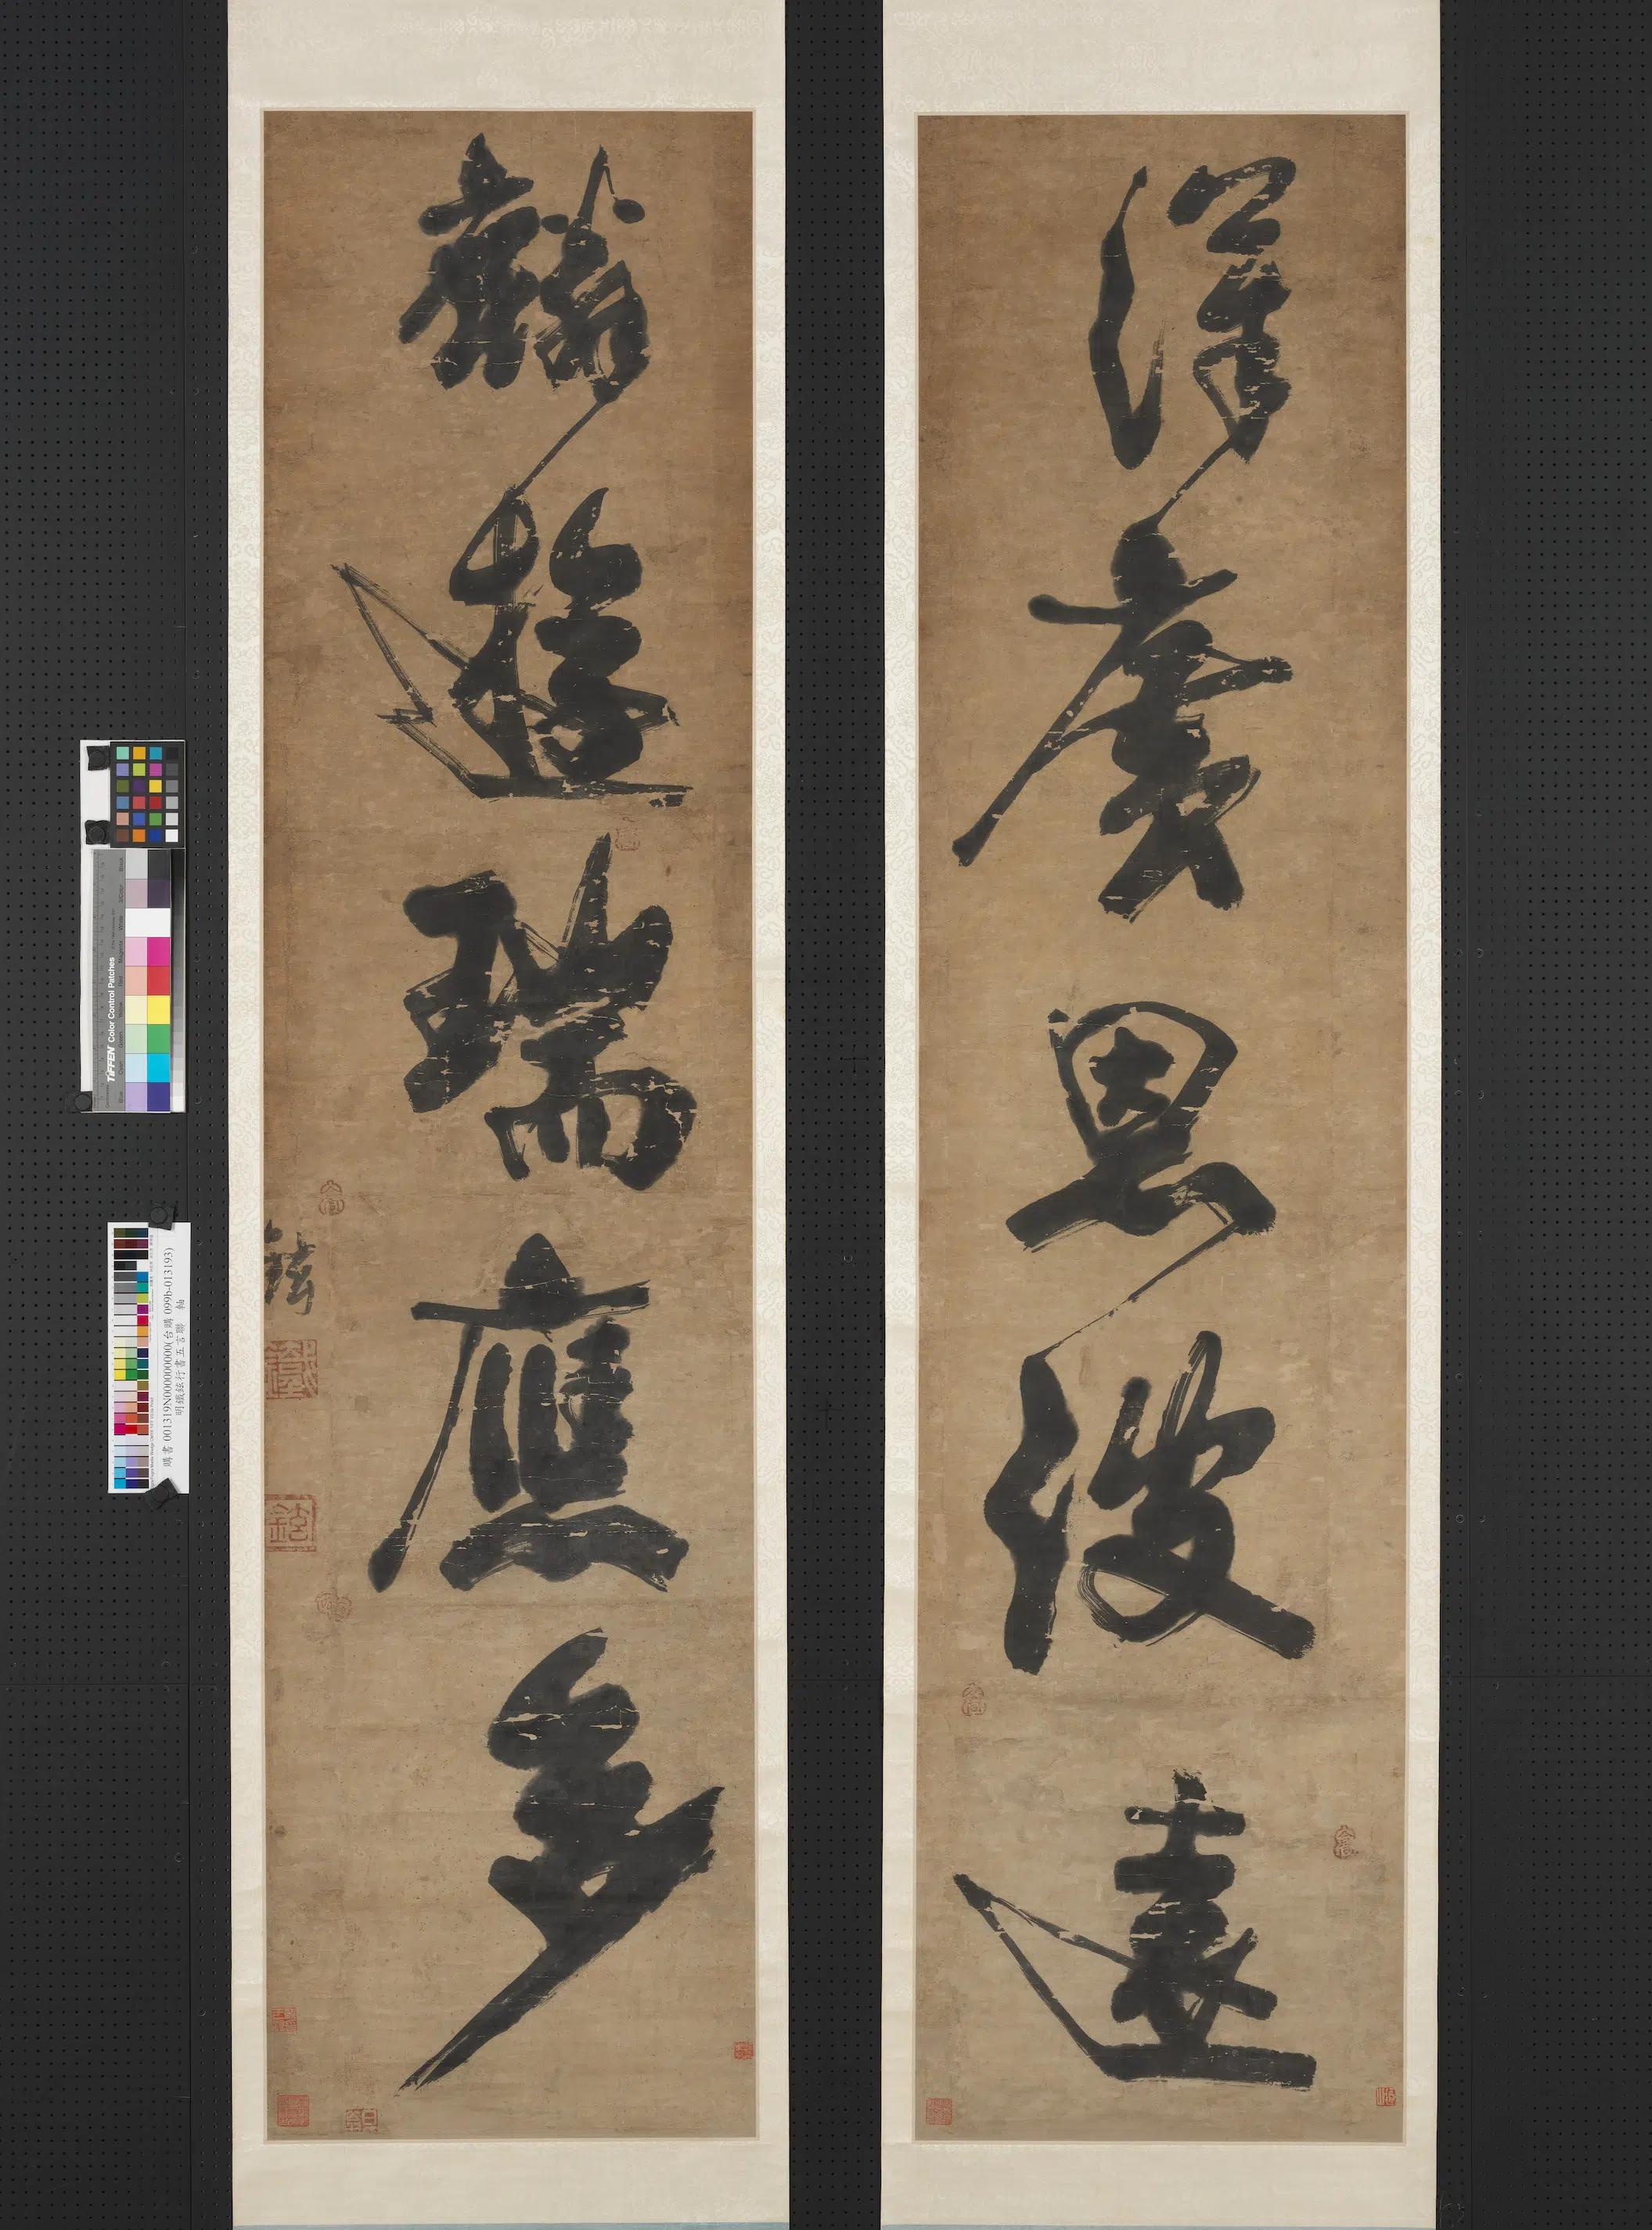 澤廣恩波遠
麟遊瑞應多
鉉
TIFFEN Color Control Patches
購書 001319N000000000(台購 099b-013193)
明鐵鉉行書五言聯 軸